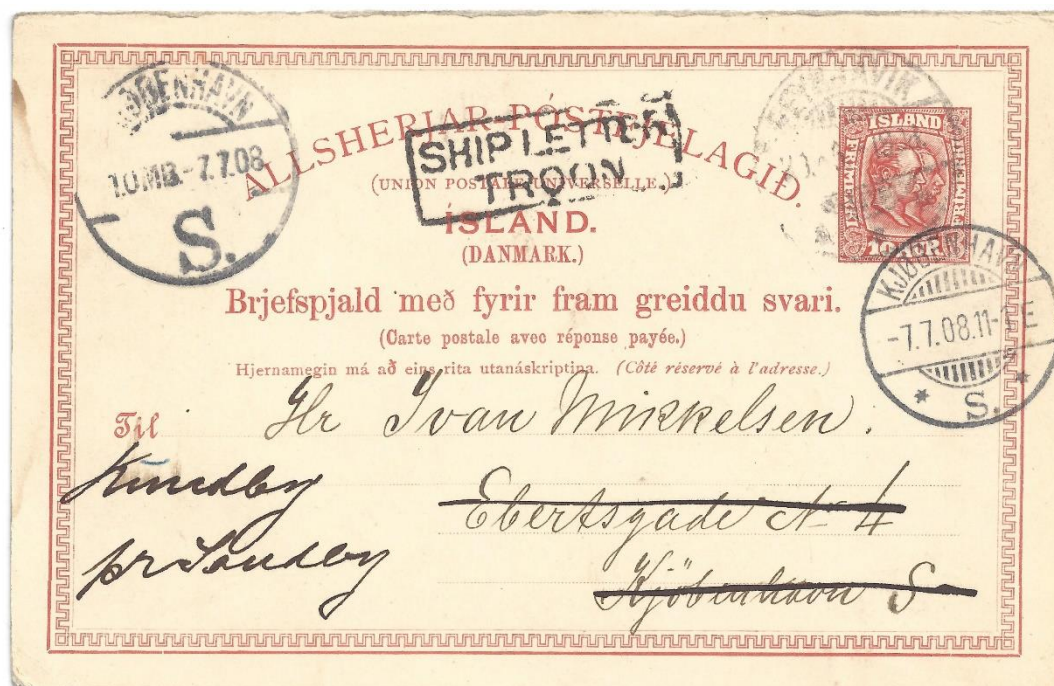 KJØBENHAVN
10.MB.-7.7.08
S.
ALLSHERJAR-PÓSTFJELAGIÐ.
(UNION POSTALE UNIVERSELLE.)
SHIP LETTER
TROON
ÍSLAND.
(DANMARK.)
REYKJAVIK
ÍSLAND
FRIMERKI
FRIMERKI
10 AUR
KJØBENHAVN
-7.7.08.11-1 E
* S. *
Brjefspjald með fyrir fram greiddu svari.
(Carte postale avec réponse payée.)
Hjernamegin má að eins rita utanáskriptina. (Côté réservé à l'adresse.)
Til Hr Ivan Mikkelsen.
Kundby
Ebertsgade No 4
pr Sandby
Kjöbenhavn S